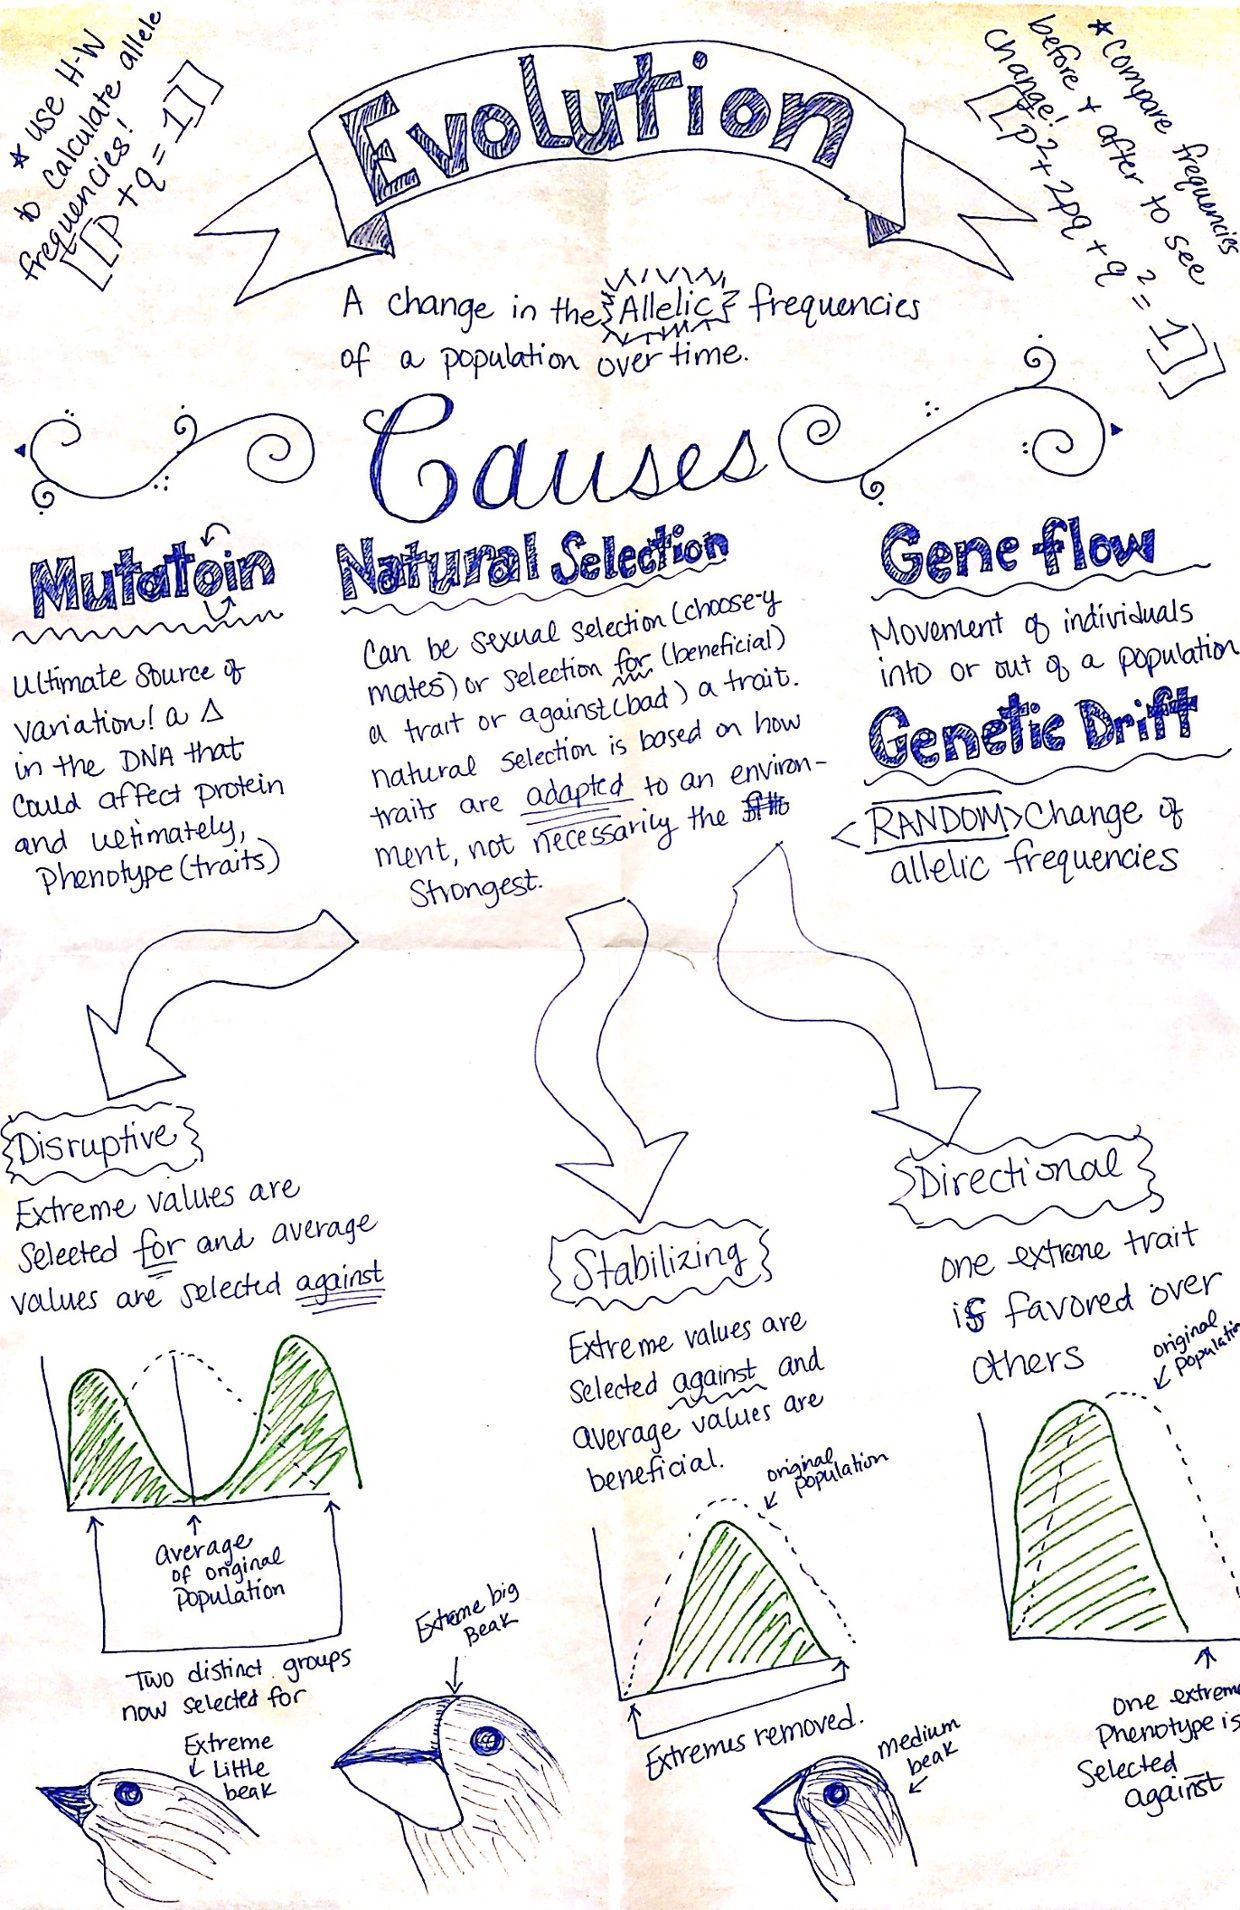 ★ use H-W
to calculate allele
frequencies!
[[P + q = 1]]
★ Compare frequencies
before + after to see
change!
[[p² + 2pq + q² = 1]]
Evolution
A change in the Allelic frequencies
of a population over time.
Causes
Mutatoin
Ultimate Source of
variation! a Δ
in the DNA that
could affect protein
and ultimately,
Phenotype (traits)
Natural Selection
Can be sexual selection (choose-y
mates) or selection for (beneficial)
a trait or against (bad) a trait.
natural selection is based on how
traits are adapted to an environ-
ment, not necessarily the
Strongest.
Gene flow
Movement of individuals
into or out of a population
Genetic Drift
<RANDOM> Change of
allelic frequencies
Disruptive
Extreme values are
selected for and average
values are selected against
average
of original
Population
Two distinct groups
now selected for
Extreme
Little
beak
Extreme big
Beak
Stabilizing
Extreme values are
selected against and
average values are
beneficial.
original
population
Extremus removed.
medium
beak
Directional
one extreme trait
is favored over
others
original
population
one extreme
Phenotype is
Selected
against